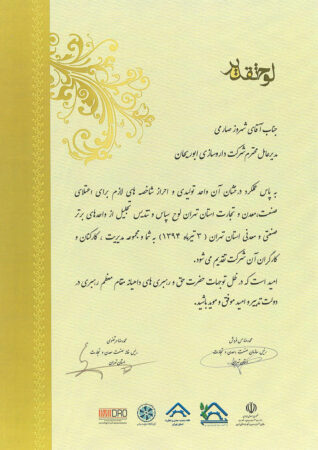 لوح تقدیر
جناب آقای شهروز صارمی
مدیرعامل محترم شرکت داروسازی ابوریحان
به پاس عملکرد درخشان آن واحد تولیدی و احراز شاخصه های لازم برای اعتلای
صنعت، معدن و تجارت استان تهران لوح سپاس و تندیس تجلیل از واحدهای برتر
صنعتی و معدنی استان تهران ( ۳ تیرماه ۱۳۹۴) به شما و مجموعه مدیریت ، کارکنان و
کارگران آن شرکت تقدیم می شود.
امید است که در ظل توجهات حضرت حق و رهبری های داهیانه مقام معظم رهبری در
دولت تدبیر و امید موفق و موید باشید.
رئیس سازمان صنعت ، معدن و تجارت
استان تهران
رئیس خانه صنعت ، معدن و تجارت
استان تهران
IDRO